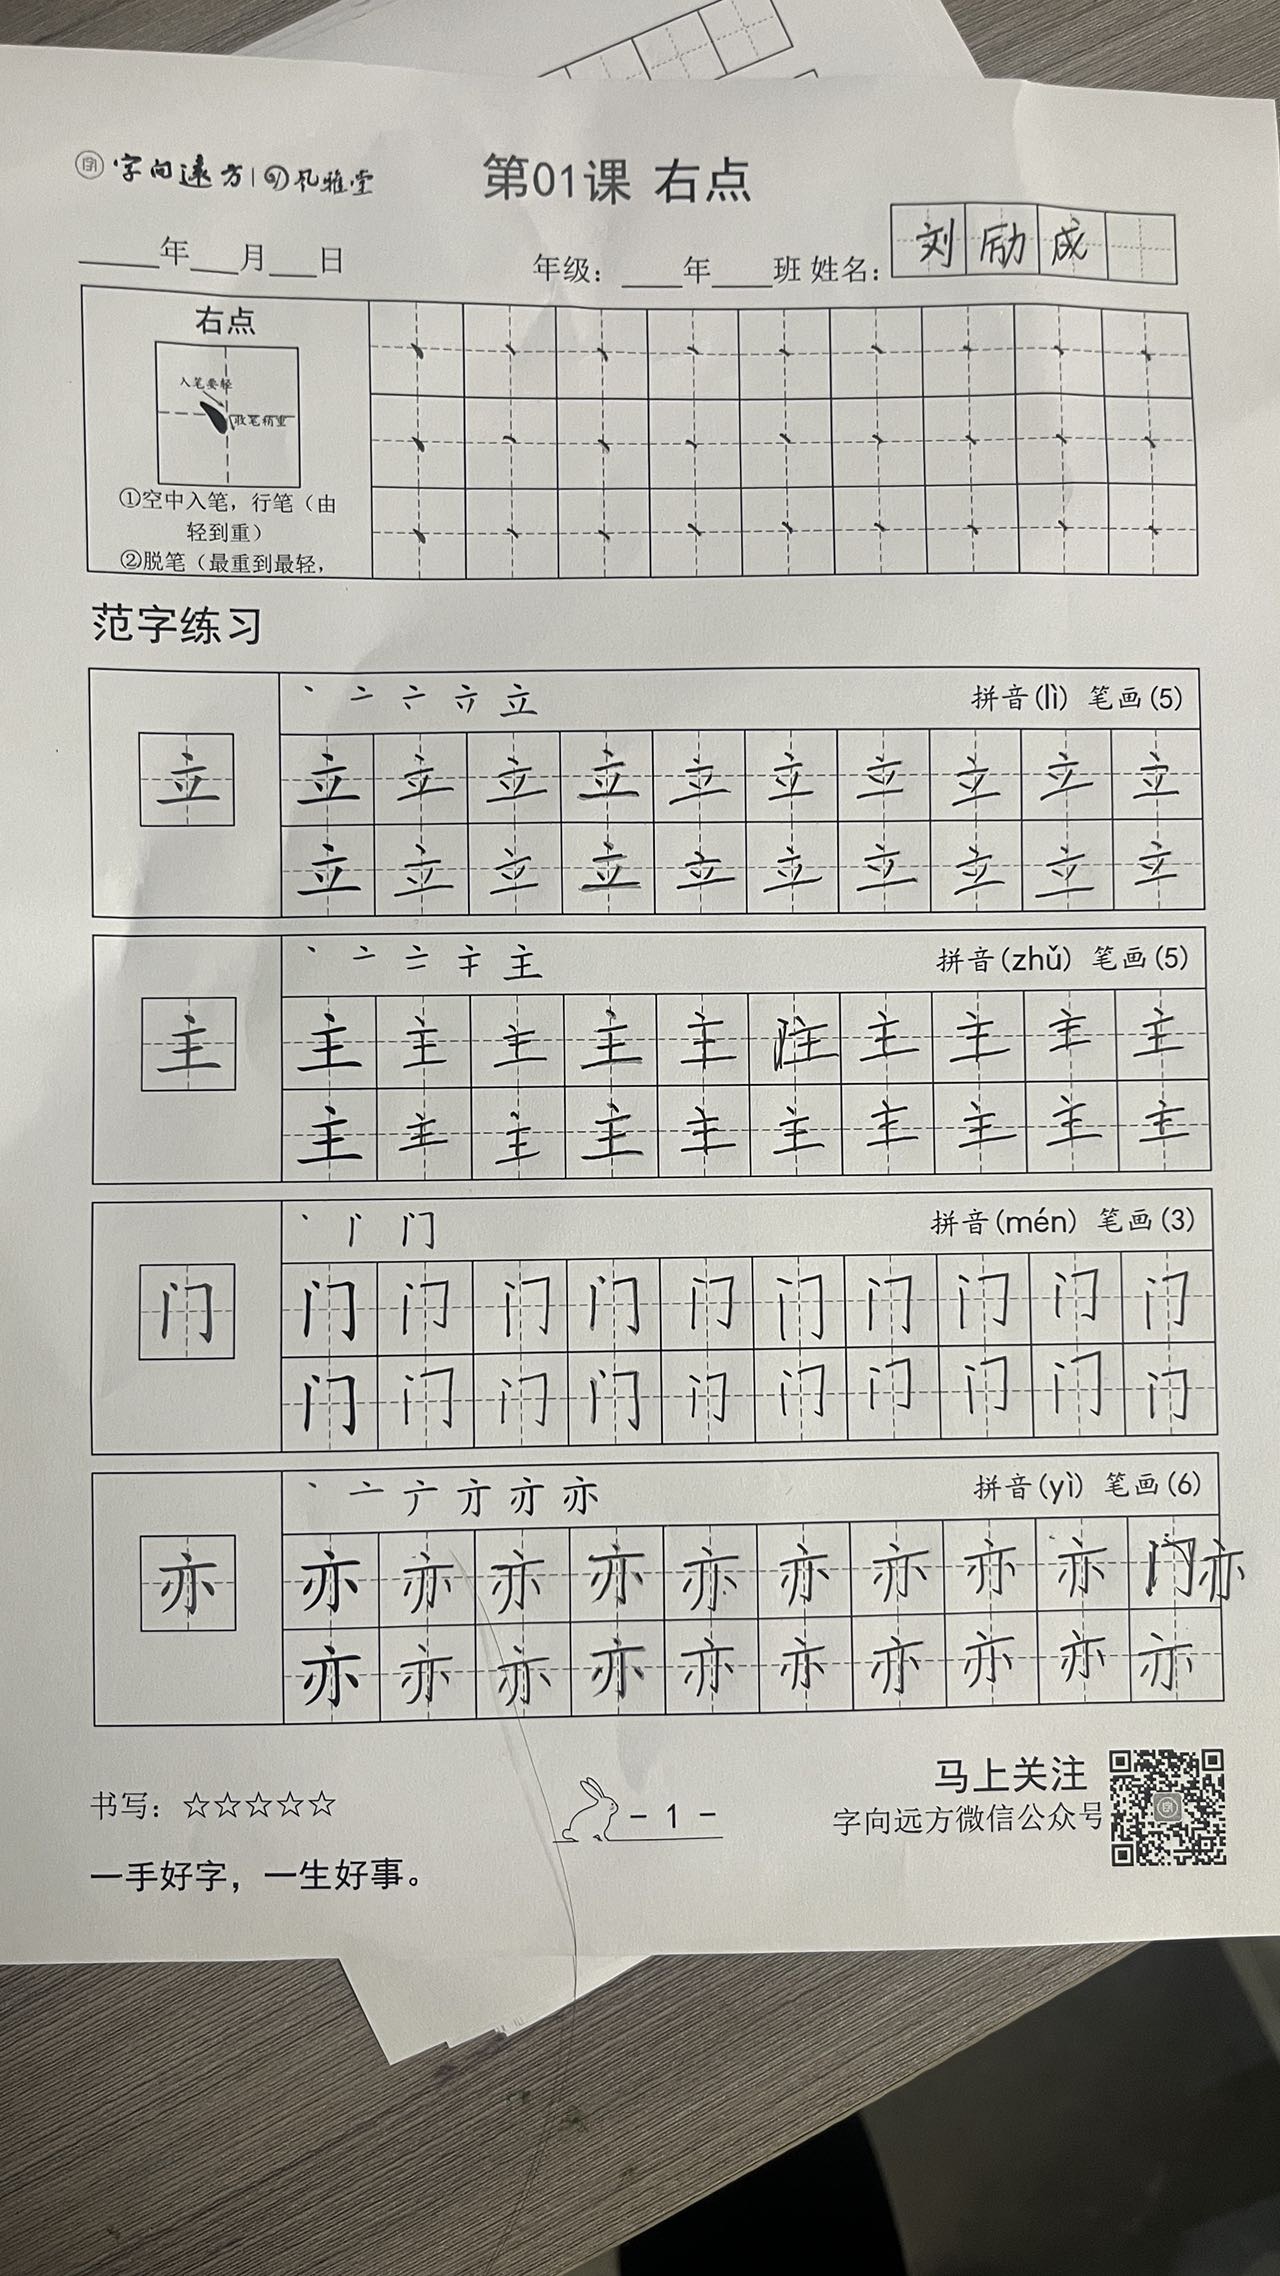 字向远方 | 风雅堂
第01课 右点
____年___月___日 年级：____年____班 姓名：刘励成
右点
入笔要轻
收笔稍重
①空中入笔，行笔（由
轻到重）
②脱笔（最重到最轻，
范字练习
丶 亠 立 拼音(lì) 笔画(5)
立 立 立 立 立 立 立 立 立 立 立
立 立 立 立 立 立 立 立 立 立
丶 亠 主 拼音(zhǔ) 笔画(5)
主 主 主 主 主 主 主 主 主 主
主 主 主 主 主 主 主 主 主 主
丶 门 拼音(mén) 笔画(3)
门 门 门 门 门 门 门 门 门 门 门
门 门 门 门 门 门 门 门 门 门
丶 亠 亦 拼音(yì) 笔画(6)
亦 亦 亦 亦 亦 亦 亦 亦 亦 亦 门亦
亦 亦 亦 亦 亦 亦 亦 亦 亦 亦
书写：☆☆☆☆☆
一手好字，一生好事。
- 1 -
马上关注
字向远方微信公众号